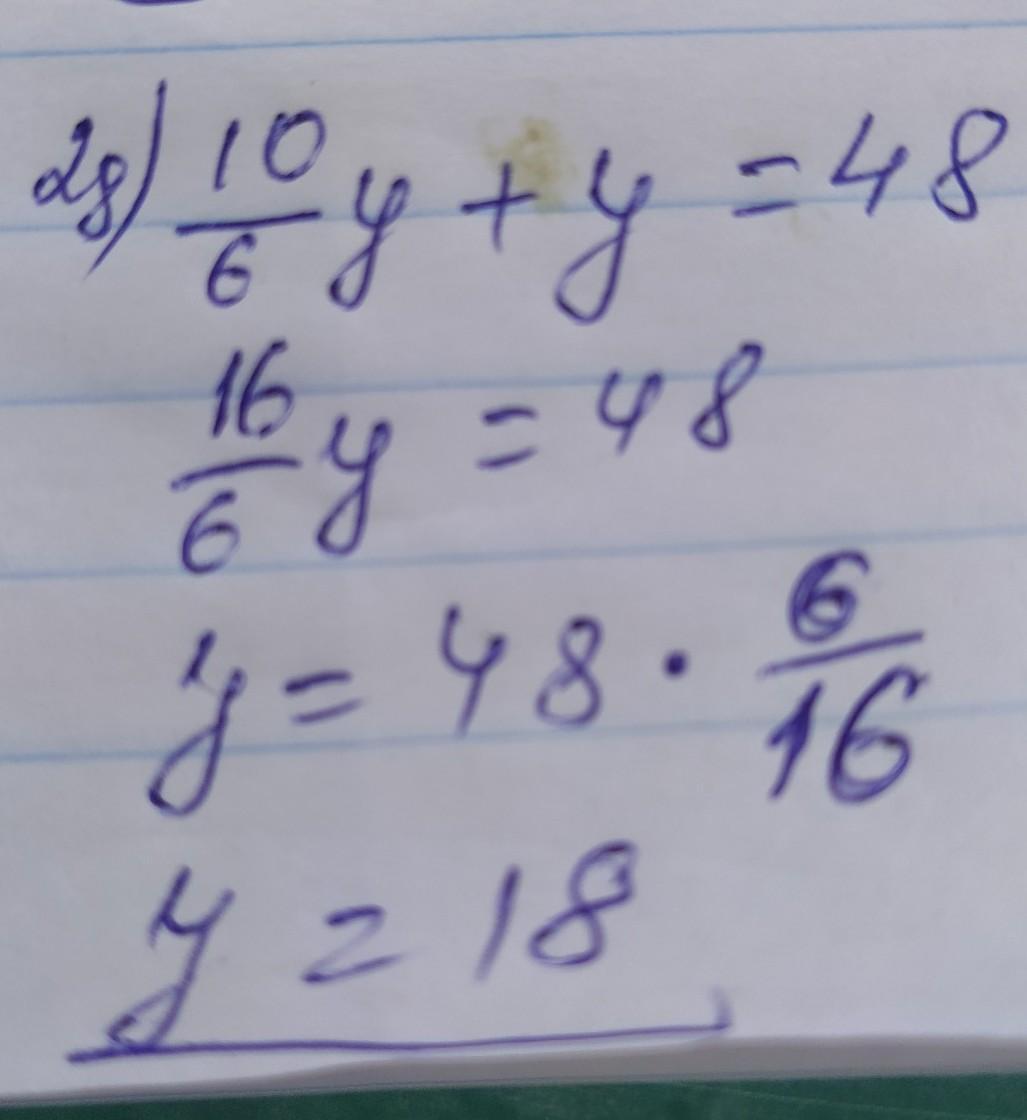 2g) 10/6 y + y = 48
16/6 y = 48
y = 48 · 6/16
y = 18